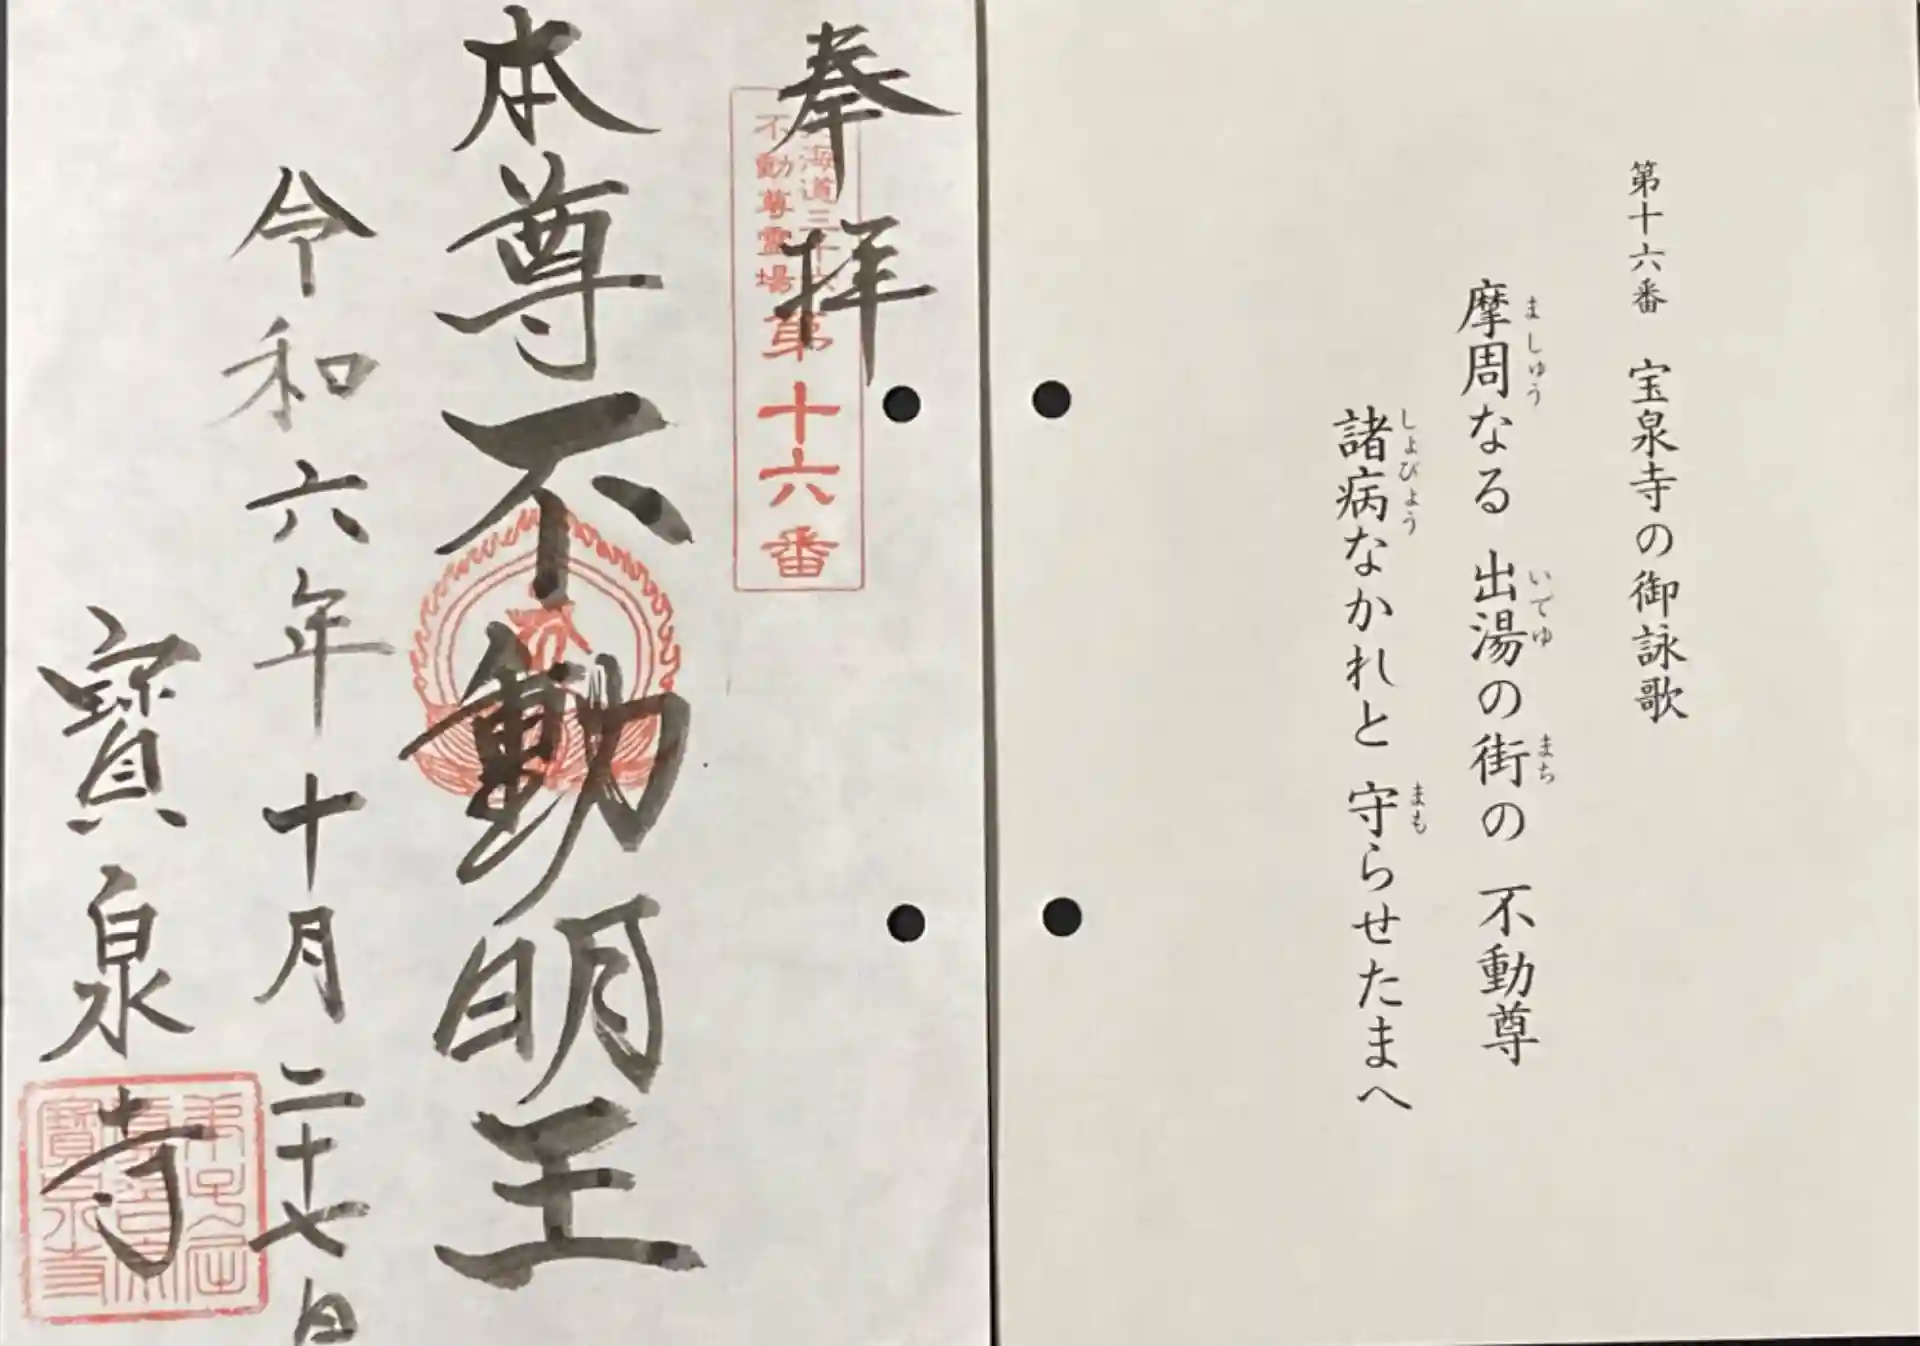 第十六番　宝泉寺の御詠歌
摩周なる 出湯の街の 不動尊
ましゅう いでゆ まち
諸病なかれと 守らせたまへ
しょびょう まも
奉拝
海道三十六
不動尊霊場
第十六番
本尊不動明王
令和六年十月二十七日
寳泉寺